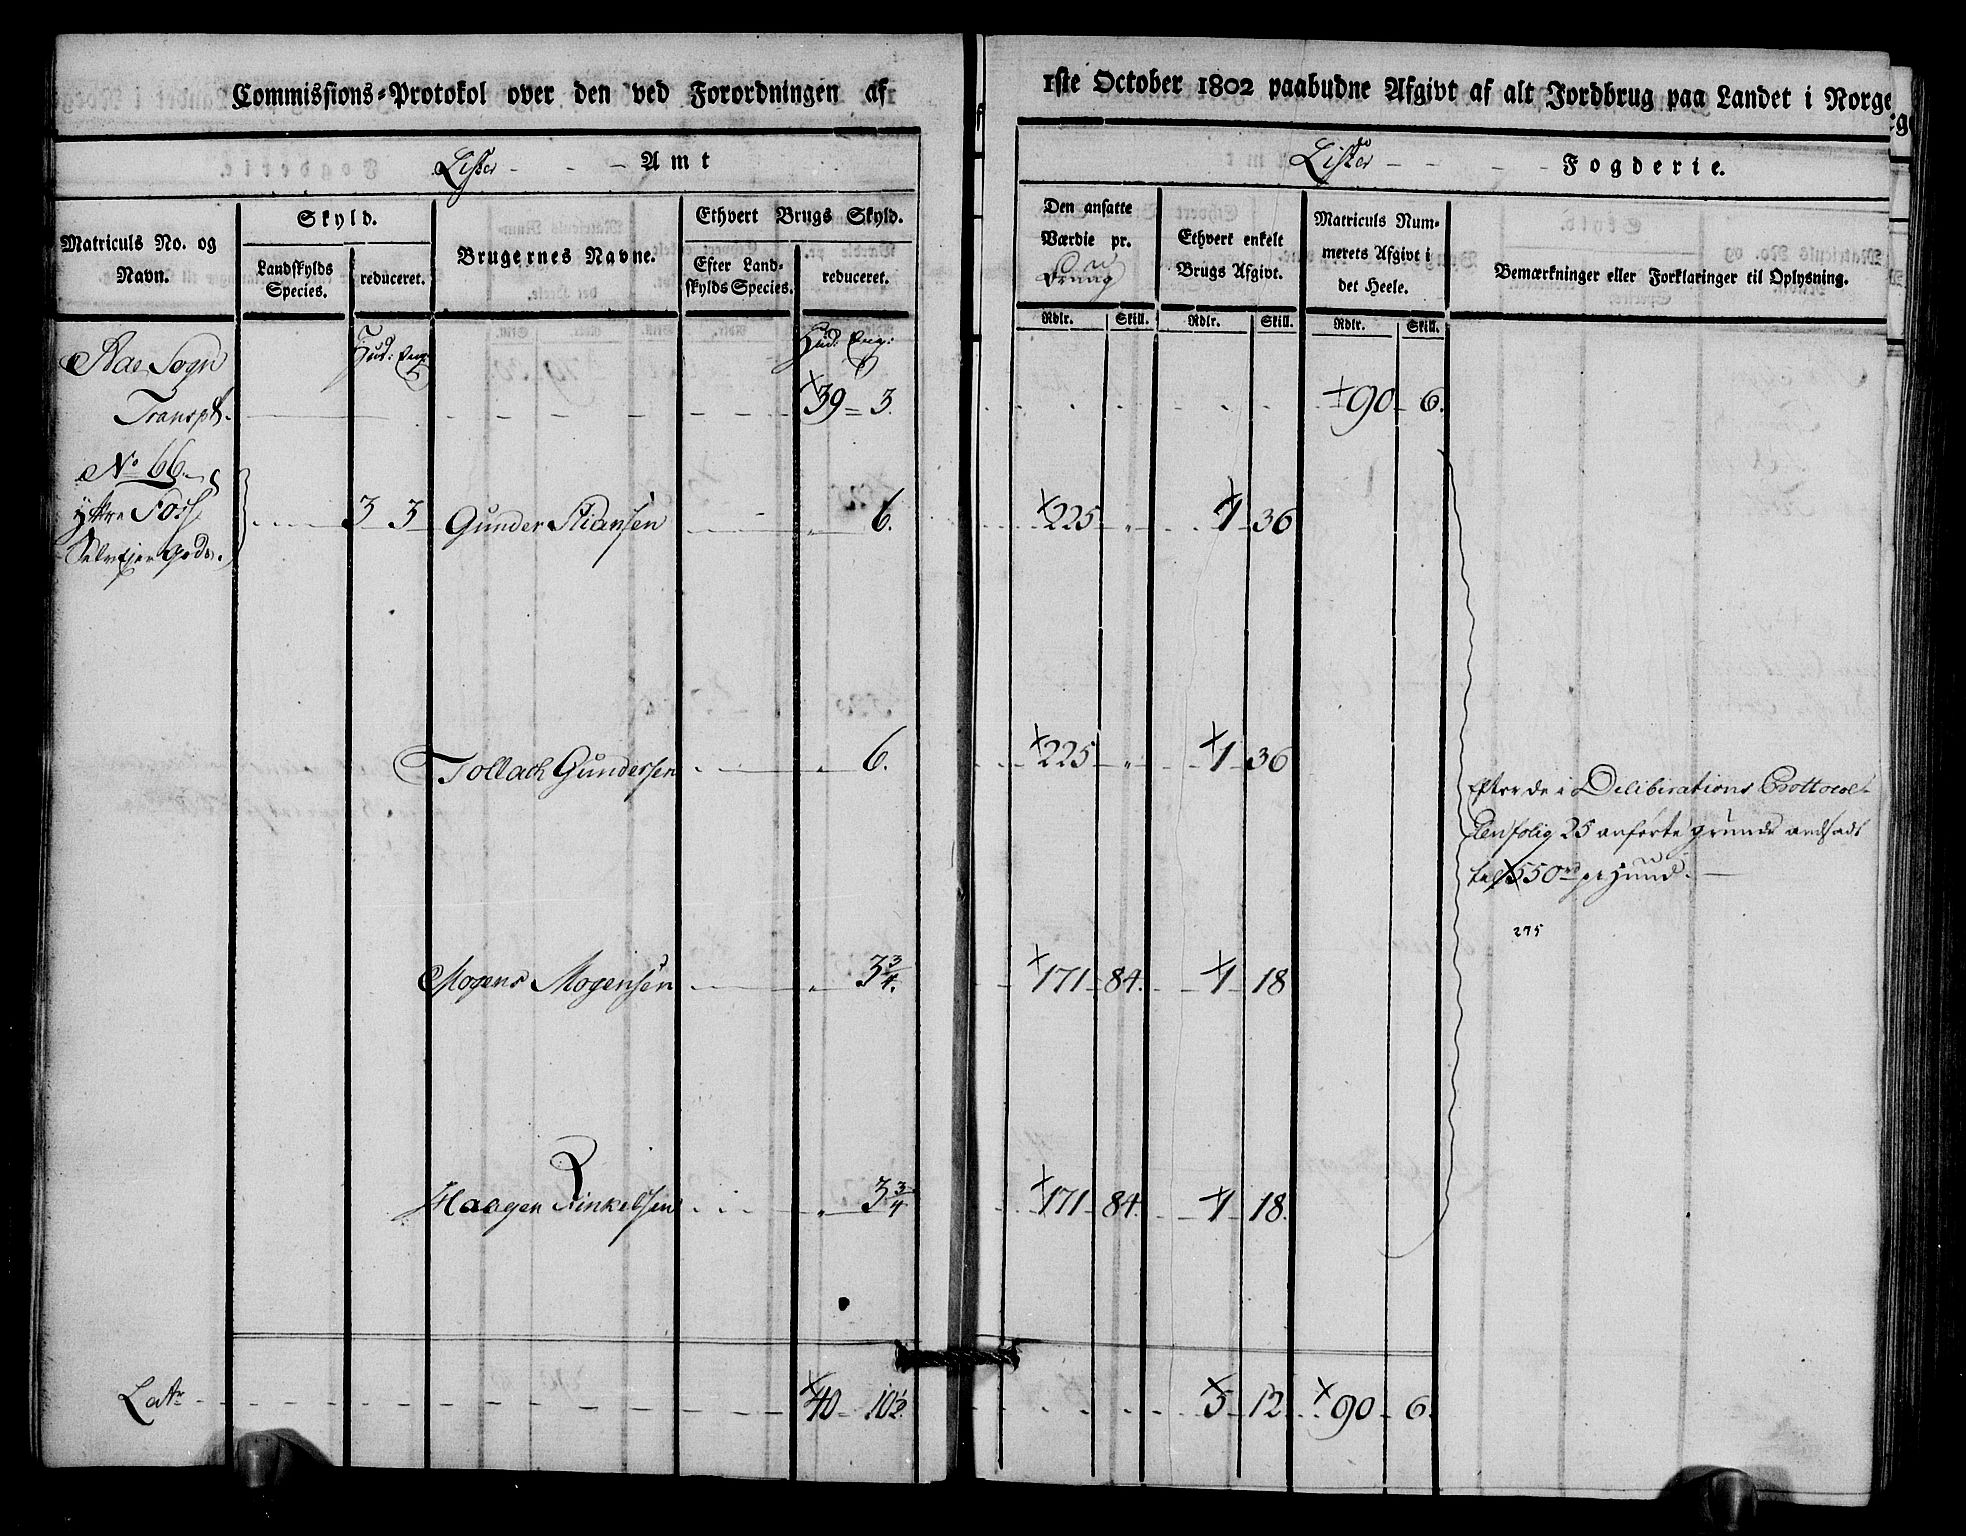 Commissions-Protokol over den ved Forordningen af
1ste October 1802 paabudne Afgivt af alt Jordbrug paa Landet i Norge
Lister Amt
Lister Fogderie.
Matriculs No. og
Navn.
Skyld.
Landskylds
Species.
reduceret.
Brugernes Navne.
Ethvert Brugs Skyld.
Efter Land-
skylds Species.
reduceret.
Den ansatte
Værdie pr.
Ethvert enkelt
Brugs Afgivt.
Matriculs Num-
merets Afgivt i
det Heele.
Bemærkninger eller Forklaringer til Oplysning.
Rdlr. Skill. Rdlr. Skill. Rdlr. Skill.
Sogn Hud: Eng: Hud: Eng:
Transpt. 39 3. 90 6.
No 66.
yttre Foss 3 3 Gunder Stiansen " 6. 225 " 1 36
Selveiergods.
Tollach Gundersen " 6. 225 " 1 36
Efter de i Deliberations Prottocol-
len folio 25 anførte grunde andsadt
til 550 rd pr Huud.
275
Mogens Mogensen " 3 3/4. 171 84. 1 18
Haagen Rinkelsen " 3 3/4 171 84. 1 18.
Latr 40 10 1/2. 5 12 90 6.